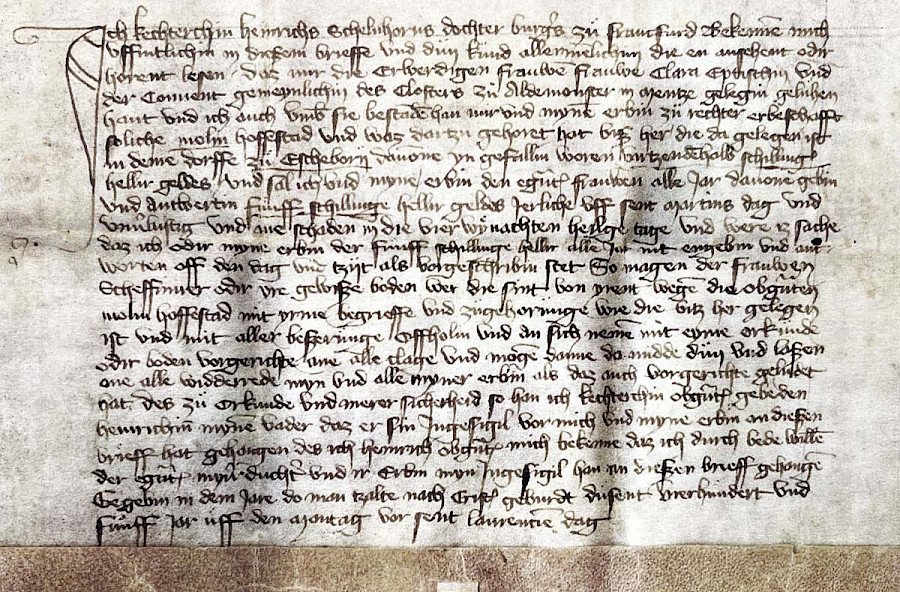 Ich kechterchin heinrichs Schelinhorns dochter burgers zu francfurd Bekennen mich
uffintlichin in diesem brieffe und dun kund allermenlichin die en ansehent odir
horent lesen, daz mir die Erwerdigen frauwen frauwe Clara Eptischin und
der Convent gemeynlichin des Closters zu Aldemonster in mentze gelegin geluhen
hant und ich auch umb sie bestaden han mir und myne erbin zu rechter erbeschafft
soliche moln hoffestad und waz dartzu gehoret hat biz her die da gelegen ist
in deme dorffe zu Escheborn davone yn gefallin woren virtzendehalb schillinge
hellir geldes und sal ich und myne erbin den egut frauwen alle Jar davone gebin
und antwertin funff schillinge hellir geldes Jerliche uff sent martins dag und
unverlustig und ane schaden in die vier wynachten heilge tage und were iz sache
daz ich odir myne erbin der funff schillinge hellir alle Jar nit engebin und ant-
worten off den dag und tzijt als vorgeschribin stet So magen der frauwen
Scheffener odir yre gewisze boden wer die sint von yrent wege die obguten
moln hoffestad mit yrme begrieffe und zugehorunge wie die biz her gelegen
ist und mit aller beszerunge Offholin und an sich nemen mit eyme orkunde
odir boden vorgerichte ane alle clage und mogen danne da midde dun und laszen
ane alle widderrede myn und alle myner erbin als daz auch vorgerichte geludet
hat des zu orkunde und merer sicherheid so han ich kechterchin obgut gebeden
heinrichin myne vader daz er sin Ingesigil vor mich und myne erbin an dieszen
brieff hat gehangen des ich heinrich obgut mich bekenne daz ich durch bede wille
der egut myner duchter und ir Erbin myn Ingesigil han an dieszen brieff gehangen
Gegebin in dem Jare do man tzalte nach Crist geburdt dusent vierhundert und
funff Jar uff den montag vor sent laurencien dag